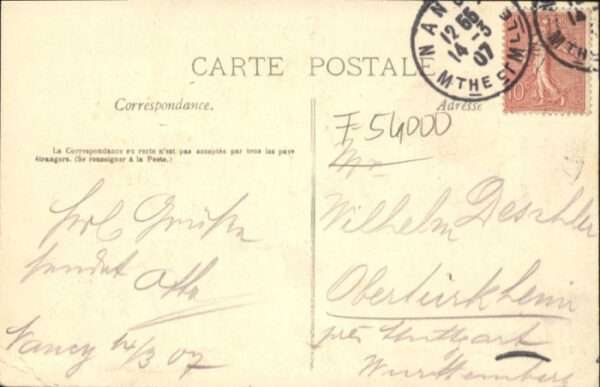 NANCY
MTHE
12 55
14 -3
07
10
CARTE POSTALE
Correspondance.
Adresse
La Correspondance au recto n'est pas acceptée par tous les pays
étrangers. (Se renseigner à la Poste.)
F-54000
Mr
Wilhelm Deschler
Obertürkheim
près Stuttgart
Württemberg
sendet Otto
Nancy 14/3 07